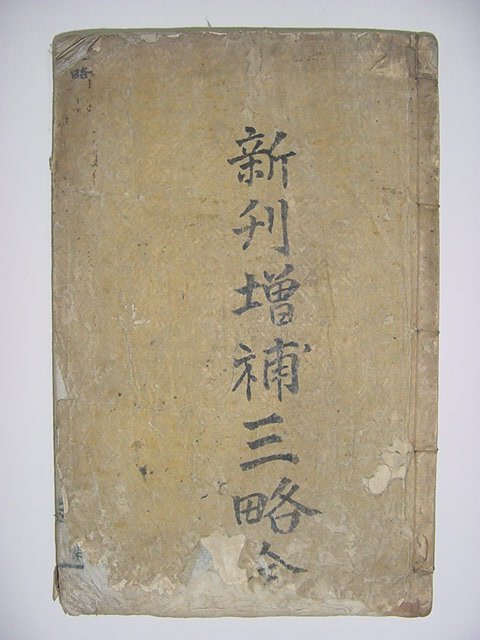 新刊增補三略全
略